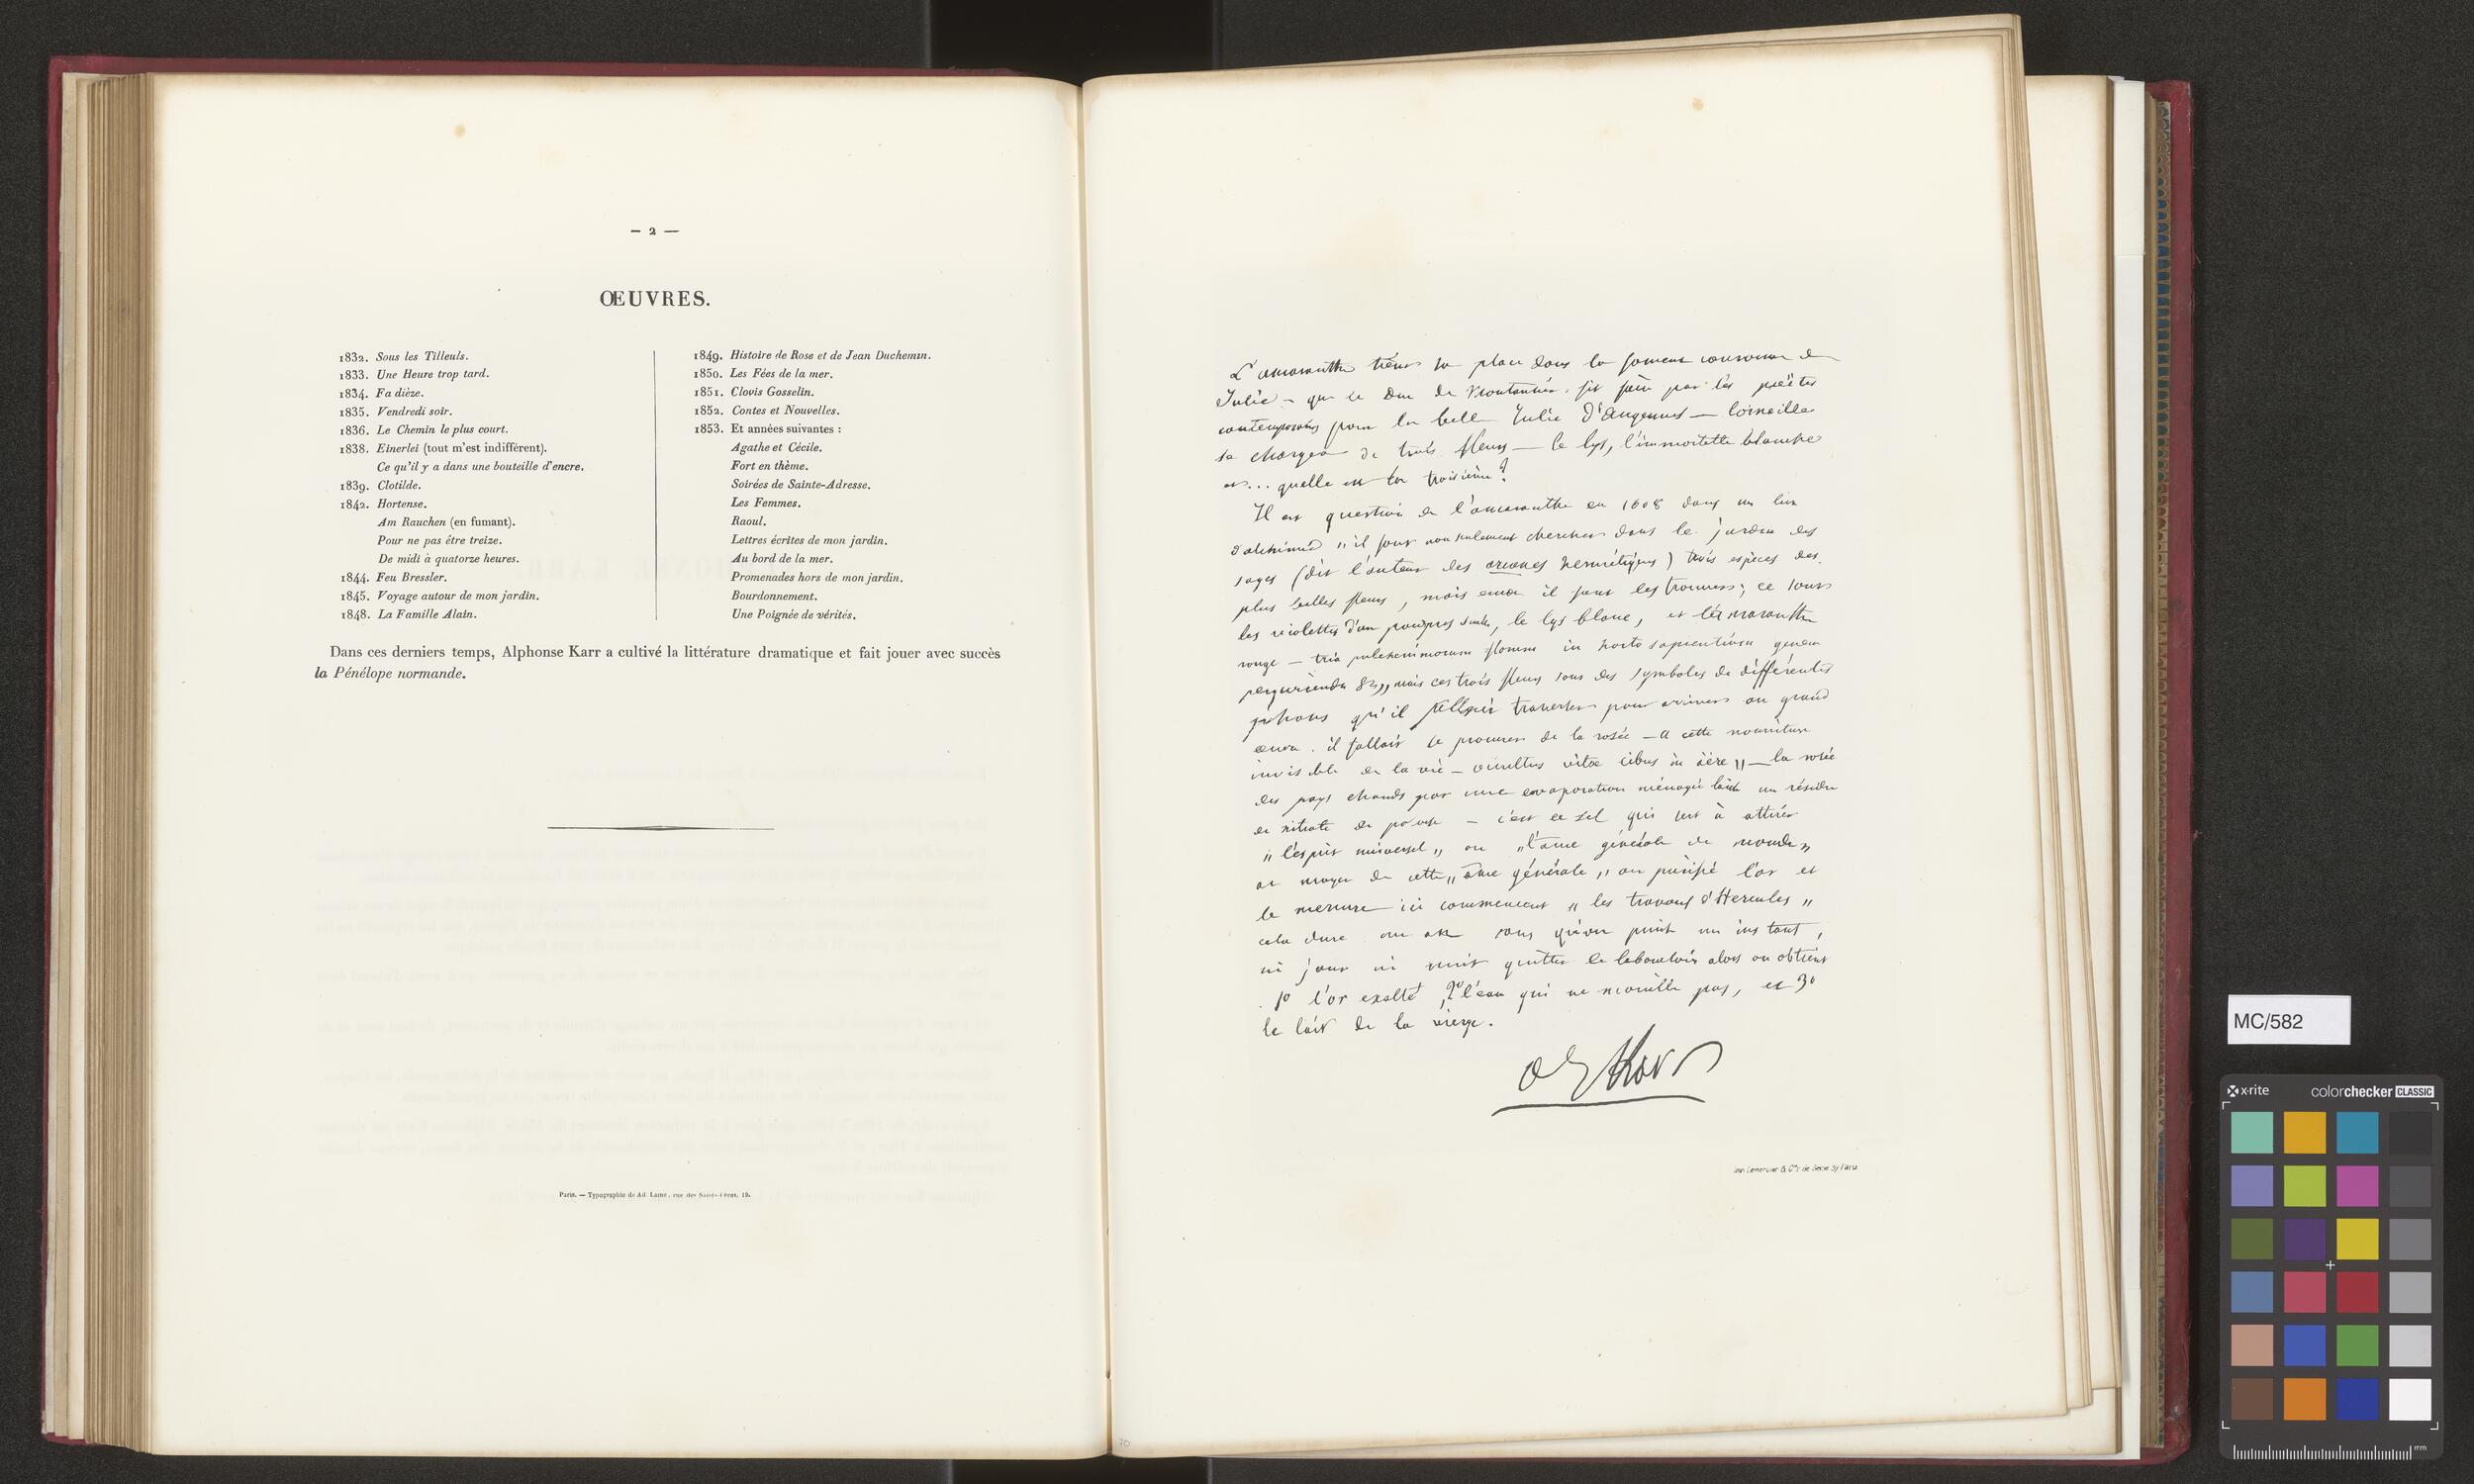 — 2 —
ŒUVRES.
1832. Sous les Tilleuls.
1833. Une Heure trop tard.
1834. Fa dièze.
1835. Vendredi soir.
1836. Le Chemin le plus court.
1838. Einerlei (tout m'est indifférent).
Ce qu'il y a dans une bouteille d'encre.
1839. Clotilde.
1842. Hortense.
Am Rauchen (en fumant).
Pour ne pas être treize.
De midi à quatorze heures.
1844. Feu Bressler.
1845. Voyage autour de mon jardin.
1848. La Famille Alain.
1849. Histoire de Rose et de Jean Duchemin.
1850. Les Fées de la mer.
1851. Clovis Gosselin.
1852. Contes et Nouvelles.
1853. Et années suivantes :
Agathe et Cécile.
Fort en thème.
Soirées de Sainte-Adresse.
Les Femmes.
Raoul.
Lettres écrites de mon jardin.
Au bord de la mer.
Promenades hors de mon jardin.
Bourdonnement.
Une Poignée de vérités.
Dans ces derniers temps, Alphonse Karr a cultivé la littérature dramatique et fait jouer avec succès
la Pénélope normande.
Paris. — Typographie de Ad. Lainé, rue des Saints-Pères, 19.
L'amaranthe tient sa place dans la fameuse couronne de
Julie — que le Duc de Montausier fit faire par les poëtes
contemporains pour la belle Julie d'Angennes — Corneille
se chargea de trois fleurs — le lys, l'immortelle blanche
et... quelle est la troisième?
Il est question de l'amaranthe en 1608 dans un livre
d'alchimie „il faut non seulement chercher dans le jardin des
sages (dit l'auteur des arcanes hermétiques) trois espèces des
plus belles fleurs, mais encor il faut les trouver; ce sont
les violettes d'un pourpre, le lys blanc, et l'amaranthe
rouge — tria pulcherrimorum florum in horto sapientium genera
mais ces trois fleurs sont des symboles de différentes
qu'il fallait traverser pour arriver au grand
œuvre. il fallait se procurer de la rosée — cette nourriture
invisible de la vie — occultus vitæ cibus in äere „ — la rosée
des pays chauds par une evaporation ménagée laisse un résidu
de nitrate de potasse — c'est ce sel qui sert à attirer
„ l'esprit universel „ ou „l'ame générale du monde„
au moyen de cette „ ame générale „ on purifie l'or et
le mercure ici commencent „ les travaux d'Hercules „
cela dure un an sans qu'on puisse un instant,
ni jour ni nuit quitter le laboratoire alors on obtient
1º l'or exalté, 2º l'eau qui ne mouille pas, et 3º
le lait de la vierge.
A Karr
MC/582
x-rite
colorchecker CLASSIC
mm